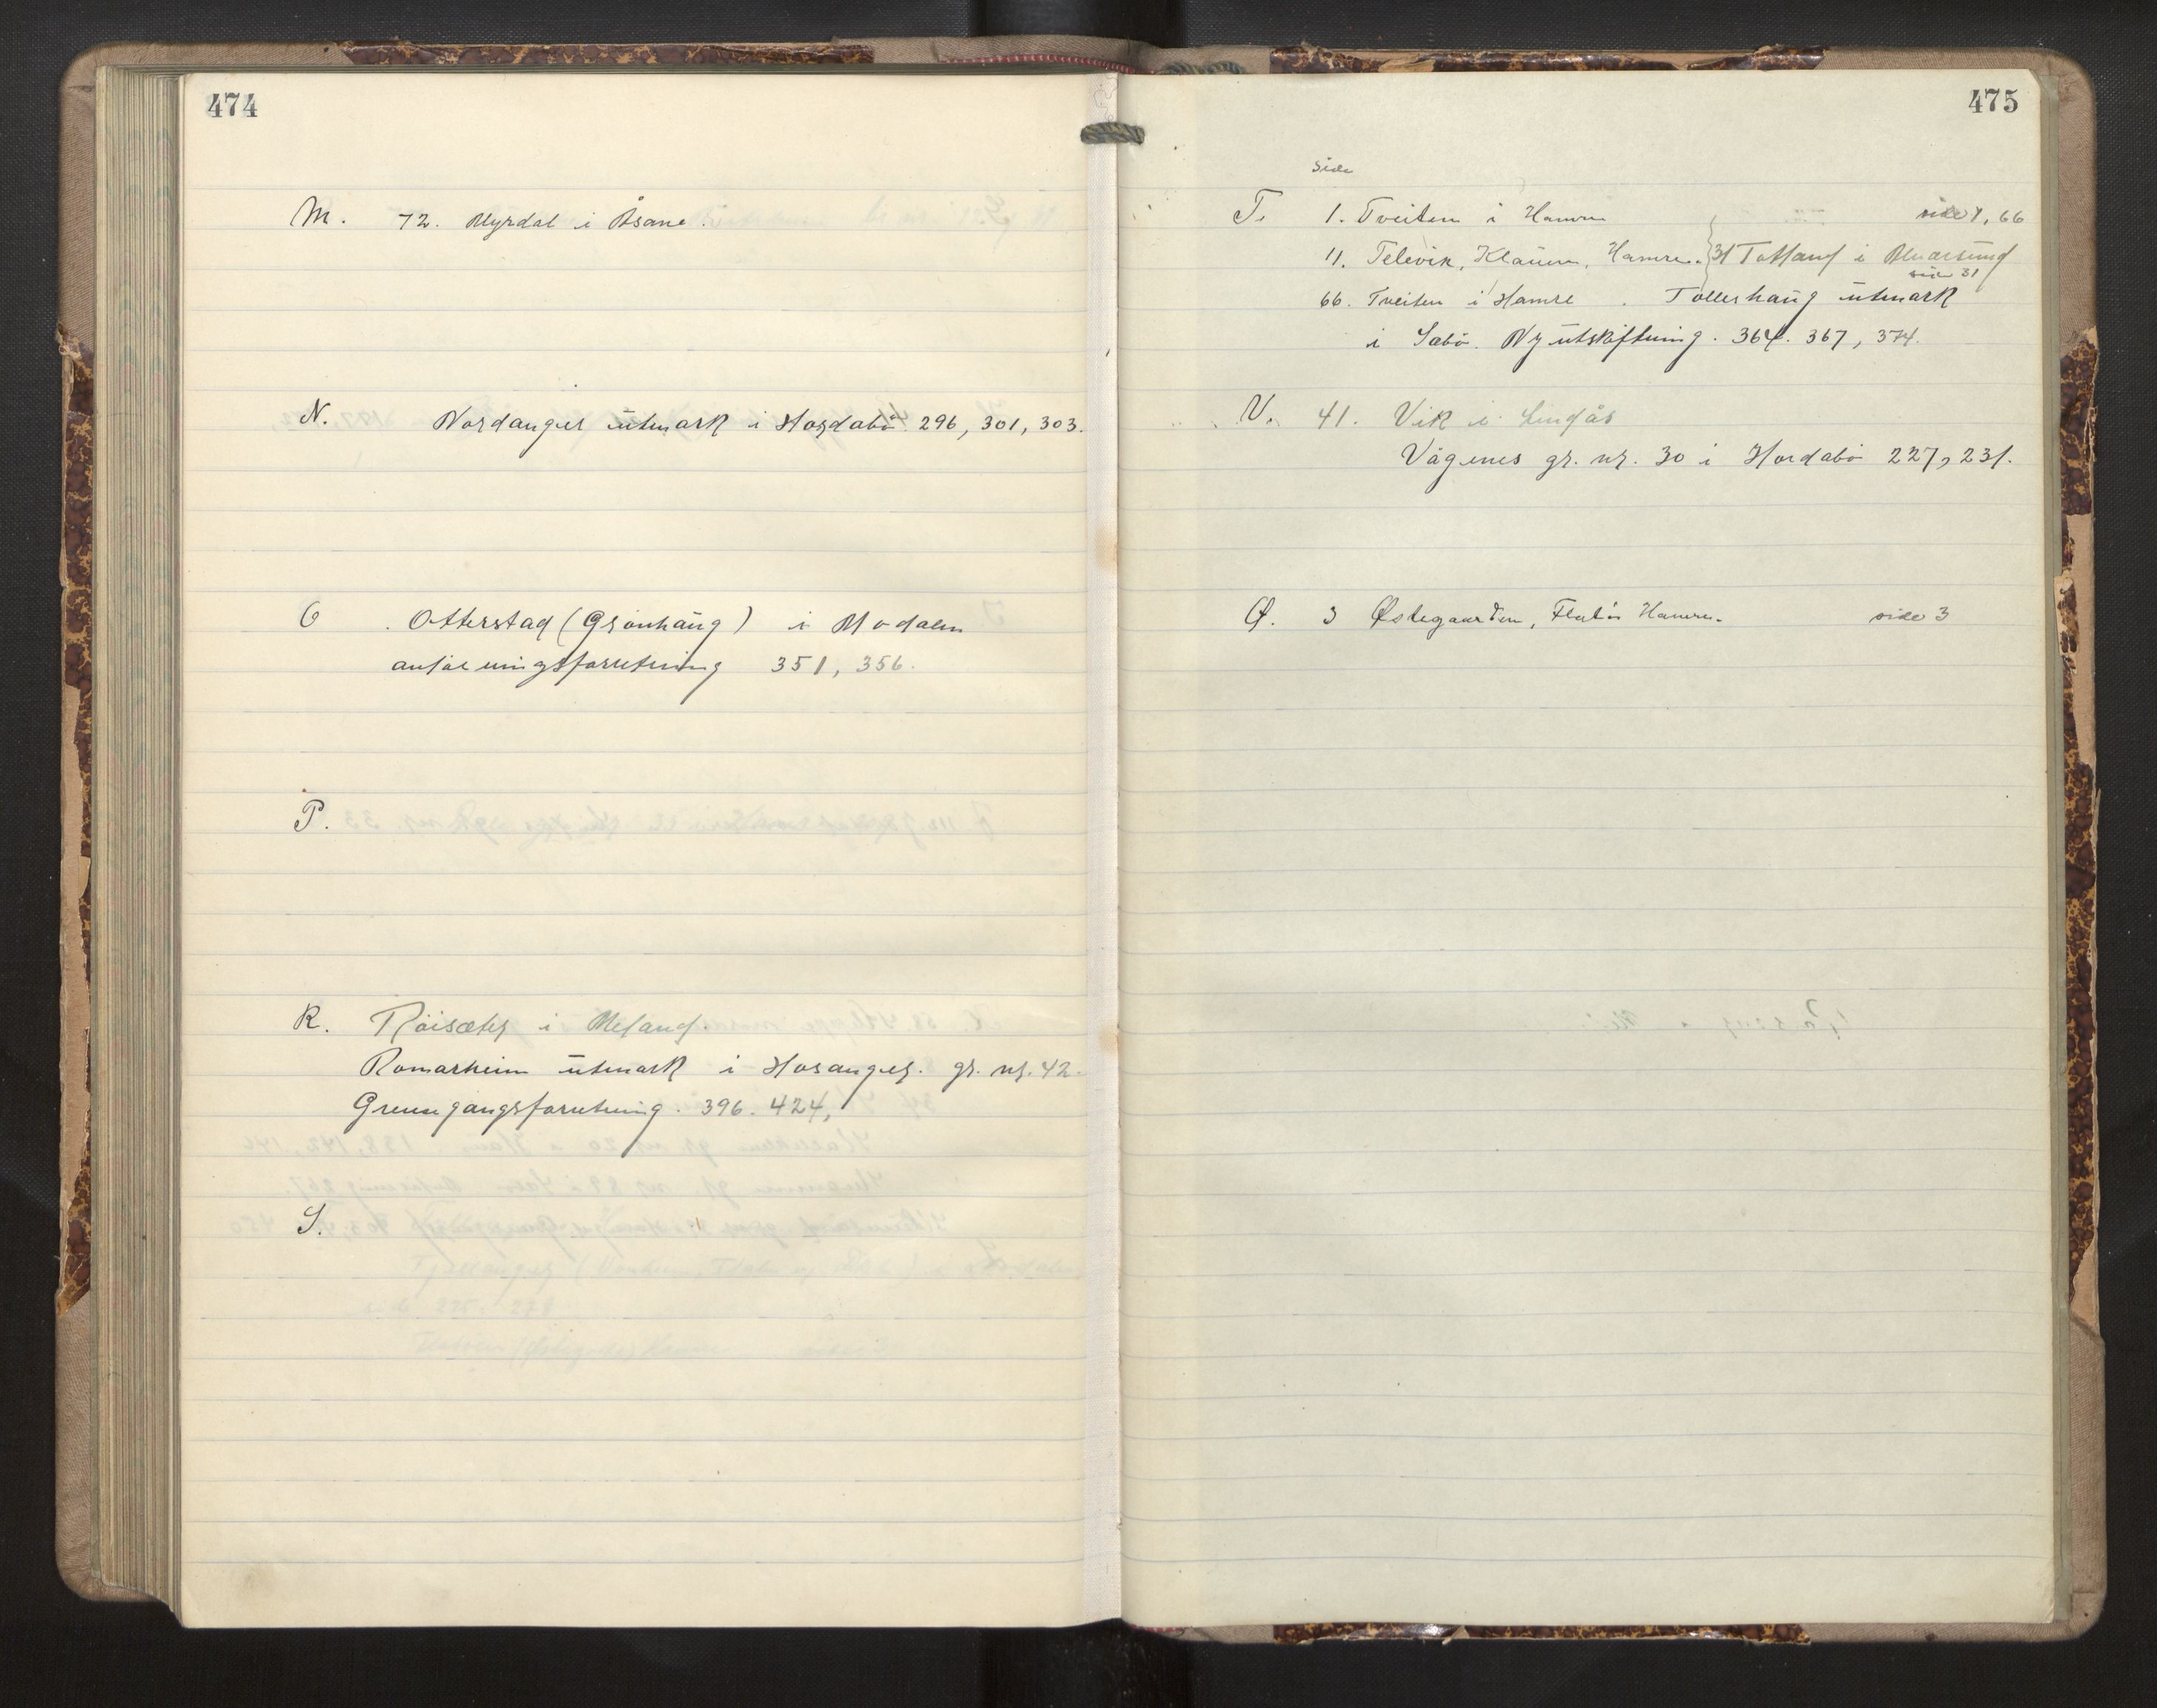 474
M. 72. Myrdal i Åsane.
N. Nordanger ütmark i Hordabö 296, 301, 303.
O . Otterstad (Grönhaüg) i Modalen
forretning 351, 356.
P.
R. Röisæter i Meland.
Romarheim ütmark i Hosanger. gr. nr. 42.
Grensegangsforretning. 396. 424,
S.
475
side
T. 1. Tveiten i Hamre side 1, 66
11. Televik, Klaüen, Hamre. } 31 Toftand i
side 31
66. Tveiten i Hamre . Tollershaüg ütmark
i Sæbö. Ny ütskiftning. 364. 367, 374.
V. 41. Vik i Lindås
Vågenes gr. nr. 30 i Hordabö 227, 231.
Ø. 3 Østegaarden, Flatöi Hamre. side 3